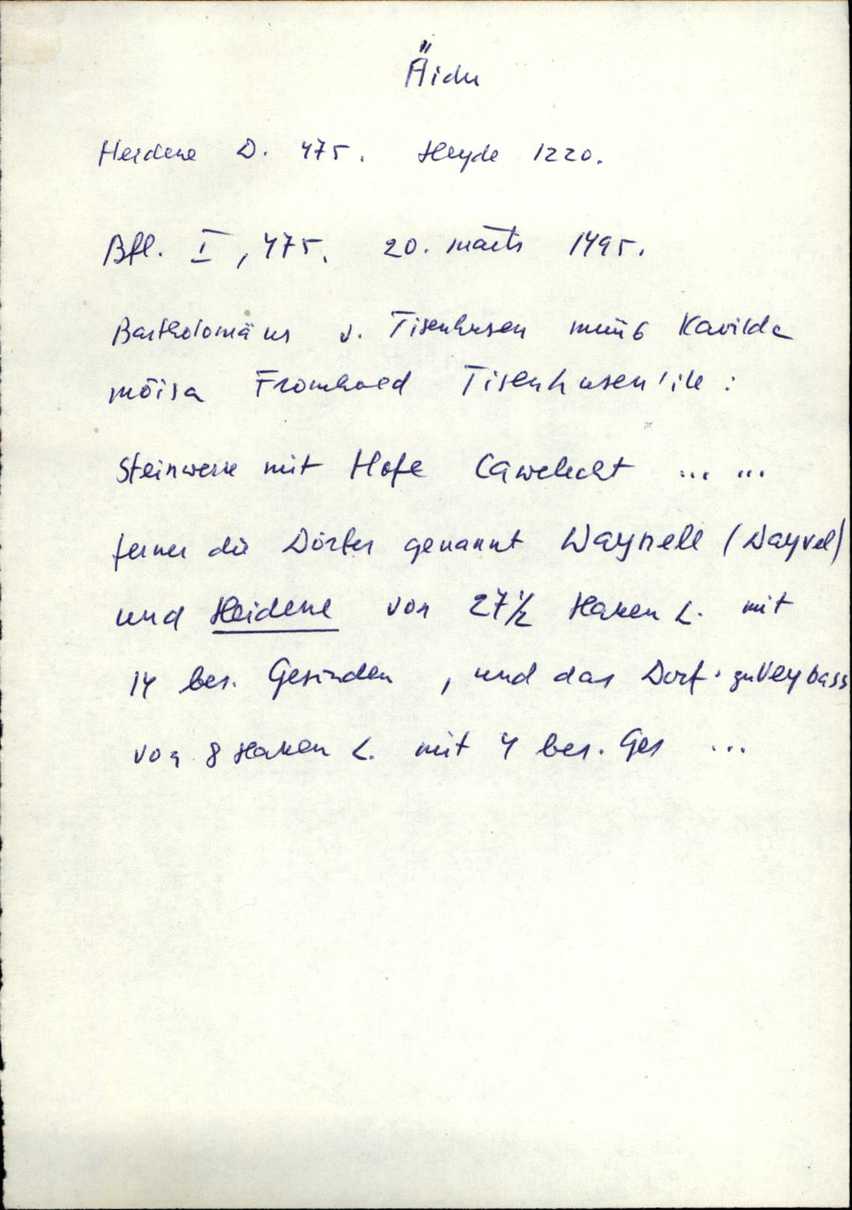 Äidu
Heidene D. 475. Heyde 1220.
Bfl. I, 475. 20. märts 1495.
Bartholomäus v. Tisenhusen müüb Kavilda
mõisa Fromhold Tisenhusen'ile:
Steinwerk mit Hofe Cawelecht ... ...
ferner die Dörfer genannt Wayvell (Wayvel)
und Heidene von 27 1/2 Haken L. mit
14 bes. Gesinden, und das Dorf zu Veybass
von 8 Haken L. mit 4 bes. Ges ...